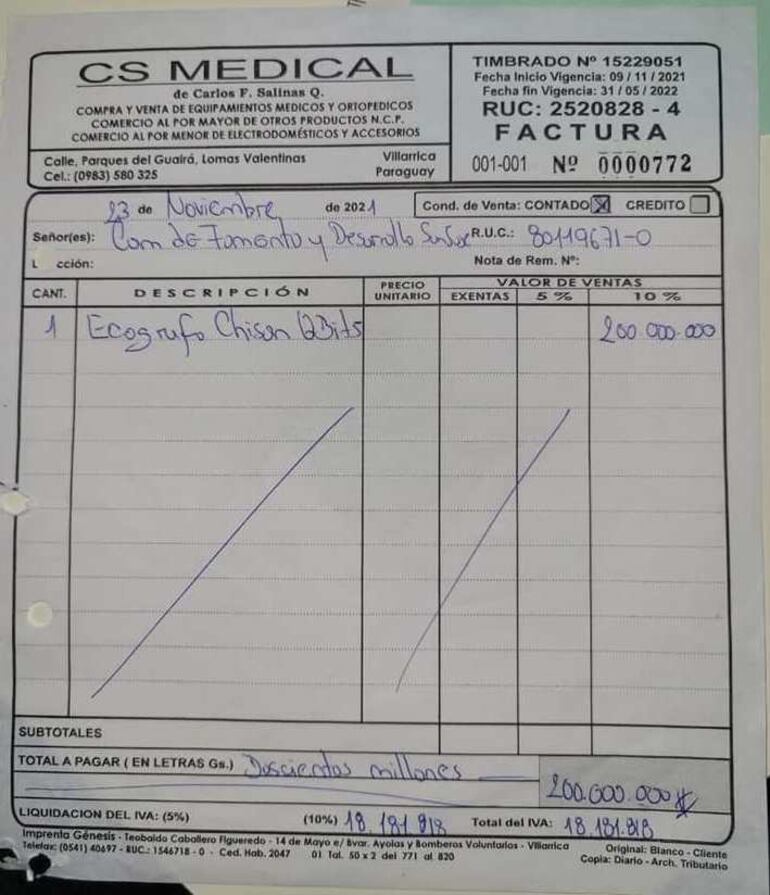 CS MEDICAL
de Carlos F. Salinas Q.
COMPRA Y VENTA DE EQUIPAMIENTOS MEDICOS Y ORTOPEDICOS
COMERCIO AL POR MAYOR DE OTROS PRODUCTOS N.C.P.
COMERCIO AL POR MENOR DE ELECTRODOMÉSTICOS Y ACCESORIOS
Calle, Parques del Guairá, Lomas Valentinas Villarrica
Cel.: (0983) 580 325 Paraguay
TIMBRADO Nº 15229051
Fecha Inicio Vigencia: 09 / 11 / 2021
Fecha fin Vigencia: 31 / 05 / 2022
RUC: 2520828 - 4
FACTURA
001-001 Nº 0000772
23 de Noviembre de 2021 Cond. de Venta: CONTADO X CREDITO
Señor(es): Com de Fomento y Desarrollo R.U.C.: 80119671-0
L cción: Nota de Rem. Nº:
CANT. DESCRIPCIÓN PRECIO UNITARIO VALOR DE VENTAS
EXENTAS 5 % 10 %
1 Ecografo Chison QBit5 200.000.000
SUBTOTALES
TOTAL A PAGAR ( EN LETRAS Gs.) Doscientos millones
200.000.000
LIQUIDACION DEL IVA: (5%) (10%) 18.181.818 Total del IVA: 18.181.818
Imprenta Génesis - Teobaldo Caballero Figueredo - 14 de Mayo e/ Bvar. Ayolas y Bomberos Voluntarios - Villarrica Original: Blanco - Cliente
Telefax: (0541) 40697 - RUC.: 1546718 - 0 - Ced. Hab. 2047 01 Tal. 50 x 2 del 771 al 820 Copia: Diario - Arch. Tributario